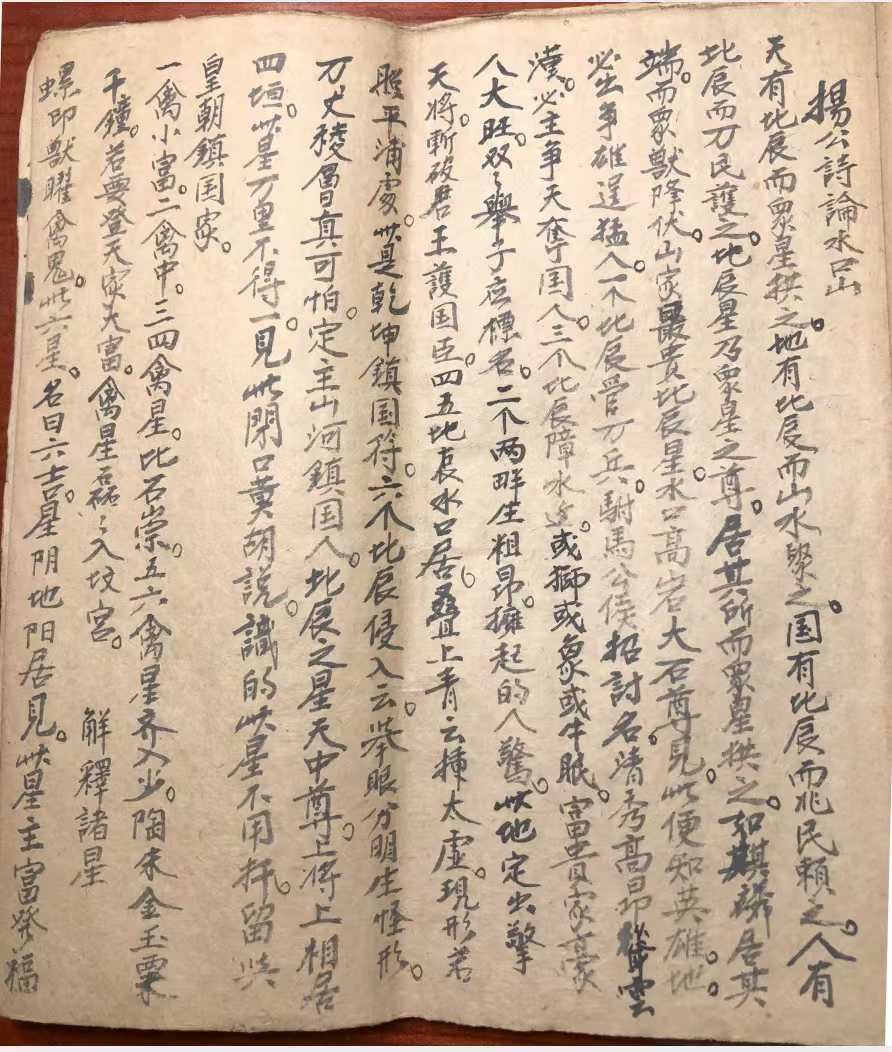 楊公詩論水口山
天有北辰而眾星拱之。地有北辰而山水聚之。国有北辰而兆民賴之。人有
北辰而万民護之。北辰星乃眾星之尊。居其所而眾星拱之。如麒麟居其
端。而眾獸降伏。山家最貴北辰星。水口高岩大石尊。見此便知英雄地。
必出争雄逞猛人。一个北辰管万兵。駙馬公侯招討名。清秀高昂聳雲
漢。必主争天奪国人。三个北辰障水边。或獅或象或牛眠。富貴豪
人大旺。双々舉子应標名。二个两畔生粗昂。擁起的人驚。此地定出擎
天将。斬破君王護国臣。四五北辰水口居。叠上青云揷太虚。現形若
照平浦處。此是乾坤鎮国符。六个北辰侵入云。举眼分明生怪形。
万丈稜曾真可怕。定主山河鎮国人。北辰之星天中尊。上将上相居
四垣。此星万里不得一。見此閉口莫胡説。識的此星不用扦。留與
皇朝鎮国家。
一禽小富。二禽中。三四禽星。比石崇。五六禽星齐入少。陶朱金玉粟
千鐘。若要登天家大富。禽星磊々入坟宫。 解釋諸星
螺印獸曜禽鬼。此六星。名曰六吉星阴地阳居見。此星主富發福